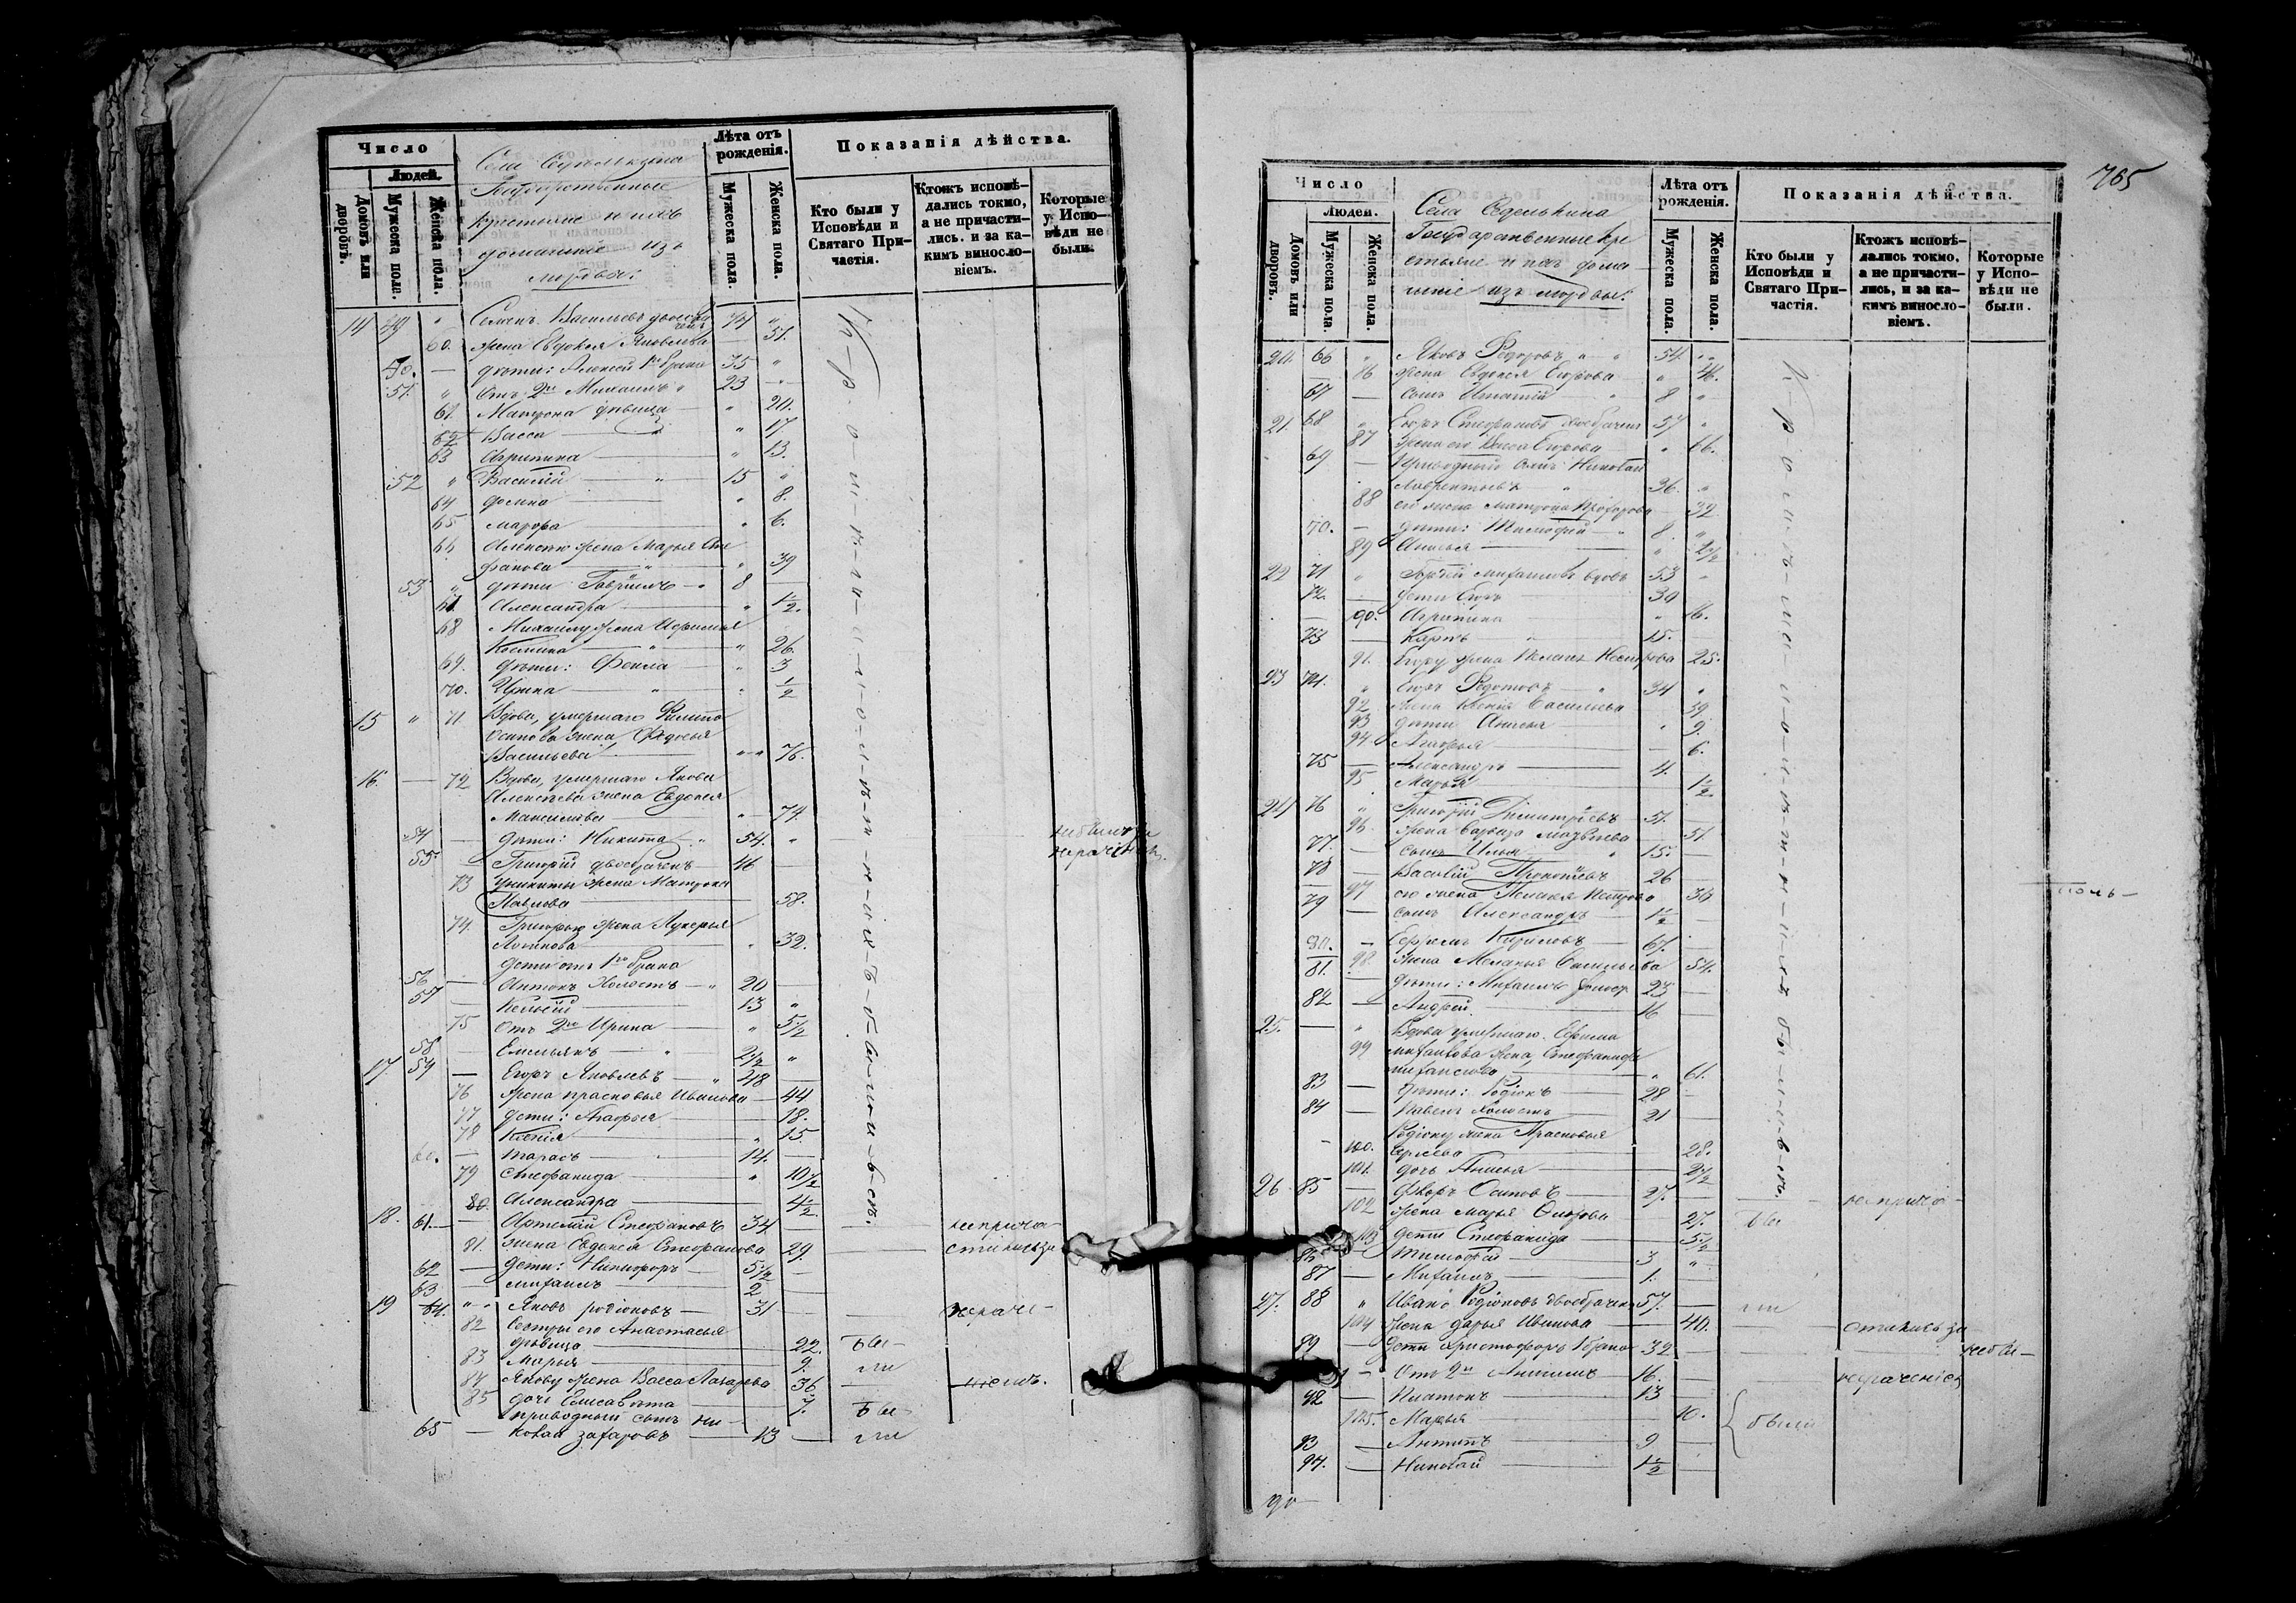 Число
Людей.
Домовъ или дворовъ.
Мужеска пола.
Женска пола.
Села Седелькина
Государственные
крестьяне и ихъ
домашніе изъ
мордвы:
Лѣта отъ рожденія.
Мужеска пола.
Женска пола.
Показанія дѣйства.
Кто были у Исповѣди и Святаго Причастія.
Ктожъ исповѣдались токмо, а не причастились. и за какимъ винословіемъ.
Которые у Исповѣди не были.
14 49 " Семенъ Васильевъ 71 "
60. жена Евдокія Яковлева 51.
50. — дѣти: Алексѣй 1го брака 35 "
51. " Отъ 2го Михаилъ " 23 "
61. Матрона дѣвица — " 20.
62 Васса — " 17
63 Агрипина — " 13.
52 " Василій — " 15 "
64 Домна — " 8.
65 Марфа — " 6.
66 Алексѣю жена Марья Сте
фанова — " 39
53 " дѣти Гавріилъ — " 8 —
67 Александра — " 1½.
68 Михаилу жена Иефимья
Космина — " 26.
69. дѣти: Фекла — " 3
70. Ирина — " ½
15 " 71 Вдова, умершаго Филипа
Осипова жена Федосья
Васильева — " 76.
16. — 72 Вдова, умершаго Якова
Алексѣева жена Евдокія
Максимова — " 74.
54 — дѣти: Никита — " 54. "
55. — Григорій двоебрачен 46 —
73 У Никиты жена Матрона
Павлова — 58.
74. Григорью жена Лукерья
Логинова — " 32.
дети отъ 1го брака
56 — Антонъ Холостъ — " 20 —
57 — 13 "
75 Отъ 2го Ирина — " 5½
58 — Емельянъ — " 2½ "
17. 59 — Егоръ Яковлевъ — " 48 —
76 Жена Прасковья Иванова — 44
77 дети: Агафья — 18.
78 Ксенія — " 15.
60. — Тарасъ — 14. —
79 Стефанида — " 10½
80. Александра — 4½
18. 61. — Артемій Стефановъ 34 —
81. жена Евдокія Стефанова 29.
62 — дети: Никифоръ — 5½ —
63 — Михаилъ — 2 —
19 64. " Яковъ Родіоновъ — 31 —
82 Сестры его Анастасья
дѣвица — 22.
83 Марья — 9.
84 Якову жена Васса Лазарева 36
85 дочь Елисавѣта — 7.
приводный сынъ Ни-
65 — колай Захаровъ — 13 —
не причастились за
нераче-
ніемъ.
Бы-
ли
Бы-
ли
765
Число
Людей.
Домовъ или дворовъ.
Мужеска пола.
Женска пола.
Села Седелькина
Государственные кре
стьяне и ихъ дома-
шніе изъ мордвы:
Лѣта отъ рожденія.
Мужеска пола.
Женска пола.
Показанія дѣйства.
Кто были у Исповѣди и Святаго Причастія.
Ктожъ исповѣдались токмо, а не причастились, и за какимъ винословіемъ.
Которые у Исповѣди не были.
20. 66 " Яковъ Федоровъ " 54. "
86 жена Евдокія Егорова " 48.
67 — сынъ Игнатій " 8 "
21. 68 " Егоръ Стефановъ двоебрачен 57 "
87 жена его Васса Егорова " 66.
69 — Приводный сынъ Николай
Лаврентьевъ " 36. "
88 его жена Матрона Прохорова — 32
70. — дѣти: Тимофѣй — " 8. "
89 Анисья — " 2½
22 71 " Михаиловъ вдовъ 53 "
72. — дети Егоръ — 30
— 90. Агрипина — " 16.
73 — Карпъ " 15. —
91. Егору жена Нестерова 25.
23 74. " Егоръ Федотовъ — " 34 "
92 жена Ксенія Васильева 39
93 дѣти Анисья " 9.
94 Агафья — 6.
75 — Александръ — 4.
95 Марья — 1½
24 76 " Григорій Димитріевъ — 51. —
96 жена Варвара Матвѣева 51.
77. — сынъ Илья " 15. —
78 — Василій Прокопіевъ 26 —
97 его жена Пелагея Петрова 30
79 — сынъ Александръ 1½ —
80. — Ефремъ Кириловъ — 67. —
98. жена Меланья Савельева 54.
81. дѣти: Михаилъ холост 23 —
82 — Андрей 16 —
25. — " Вдова умершаго Ефима
99 Михаилова жена, Стефанида
Михаилова — " 61.
83 — дѣти: Родіонъ — 28 —
84 — Павелъ Холостъ — 21
Родіону жена Прасковья
100. Сергеева — 28.
101. дочь Анисья — 2½
26 85 — Федоръ Осиповъ — 27. —
102 жена Марья — 27.
103 дети Стефанида — 5½
86 — Тимофѣй — 3 "
87 — Михаилъ — 1. —
27. 88 " Иванъ Родіоновъ двоебрачен 57. —
104 жена Дарья Иванова — 40.
89 — дети Христофоръ 1 брака 32 —
— Отъ 2го 16. —
92 — Платонъ — 13 —
105. Марья — 10.
93 — Антипъ — 9 —
94. — Николай — 1½ —
не прича-
Бы
ли
стились за
нераченіемъ
небы-
были